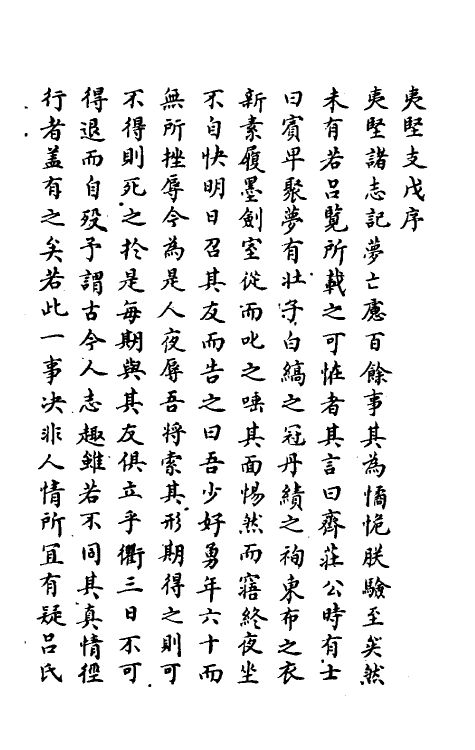 夷堅支戊序
夷堅諸志記夢亡慮百餘事其為憰怳朕驗至矣然
未有若呂覽所載之可恠者其言曰齊莊公時有士
曰賓卑聚夢有壯子白縞之冠丹績之袧東布之衣
新素履墨劍室從而叱之唾其面惕然而寤終夜坐
不自快明日召其友而告之曰吾少好勇年六十而
無所挫辱今為是人夜辱吾將索其形期得之則可
不得則死之於是每期與其友俱立乎衢三日不可
得退而自歿予謂古今人志趣雖若不同其真情徑
行者盖有之矣若此一事决非人情所冝有疑呂氏